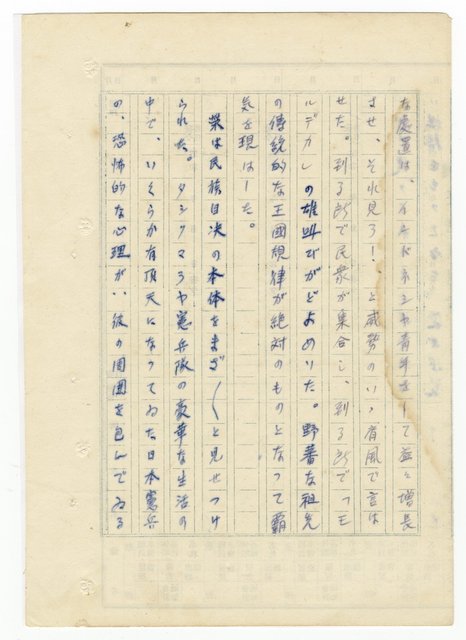 な處置は、インドネシヤ青年をして益々増長
させ、それ見ろ！、と威勢のいゝ眉風で言は
せた。到る所で民衆が集合し、到る所で「モ
ルデカ」の雄叫びがどよめいた。野蕃な祖先
の傳統的な王國規律が絶対のものとなって覇
気を現はした。
栄は民族自决の本体をまざ〱と見せつけ
られた。タシクマラヤ憲兵隊の豪華な生活の
中で、いくらか有頂天になってゐた日本憲兵
の、恐怖的な心理が、彼の周囲を包んでゐる